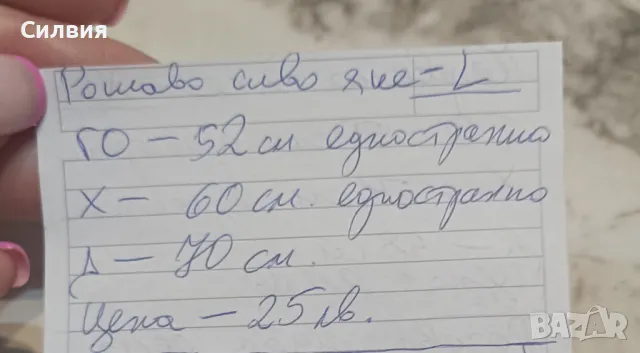 Силвия
Рошаво сиво яке - L
ГО - 52 см едностранно
Х - 60 см. едностранно
Д - 70 см.
Цена - 25 лв.
BAZAR